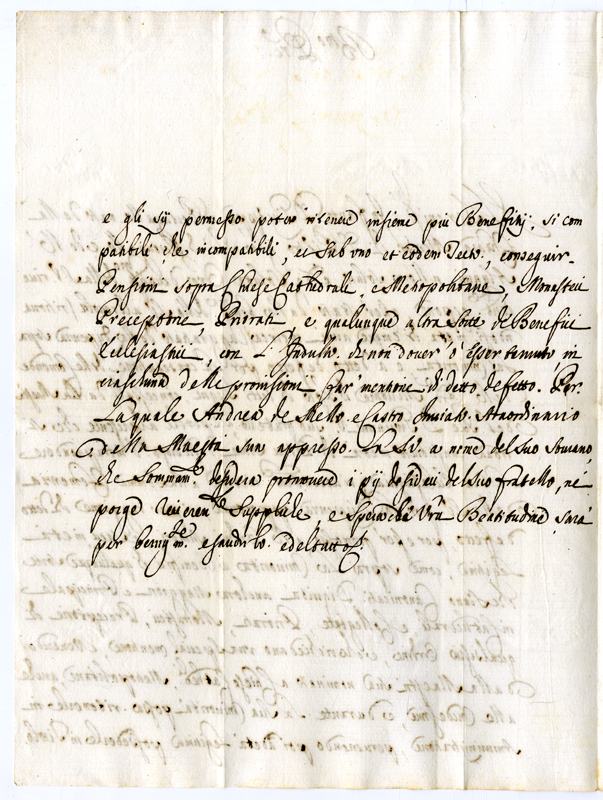 e gli sij permesso poter ritenere insieme più Beneficij, si com
patibili che incompatibili, et sub uno et eodem Tecto, conseguir
Pensioni sopra Chiese Cathedrale, e Metropolitane, Monasterij
Preceptorie, Priorati, e qualunque altra sorte de Beneficij
Ecclesiastici, con l'Indulto di non dover' ò esser tenuto, in
ciascheduna delle provisioni far' mentione di detto defetto. Per
la quale Andrea de Mello e Castro Inviato Straordinario
della Maestà sua appresso la S.V. a nome del suo sovrano,
che sommam.te desidera promuovere i pij desiderij del suo fratello, ne
porge reverenti suppliche, e spera che V'ra Beatitudine sarà
per benignam.te esaudirlo. e del tutto et.